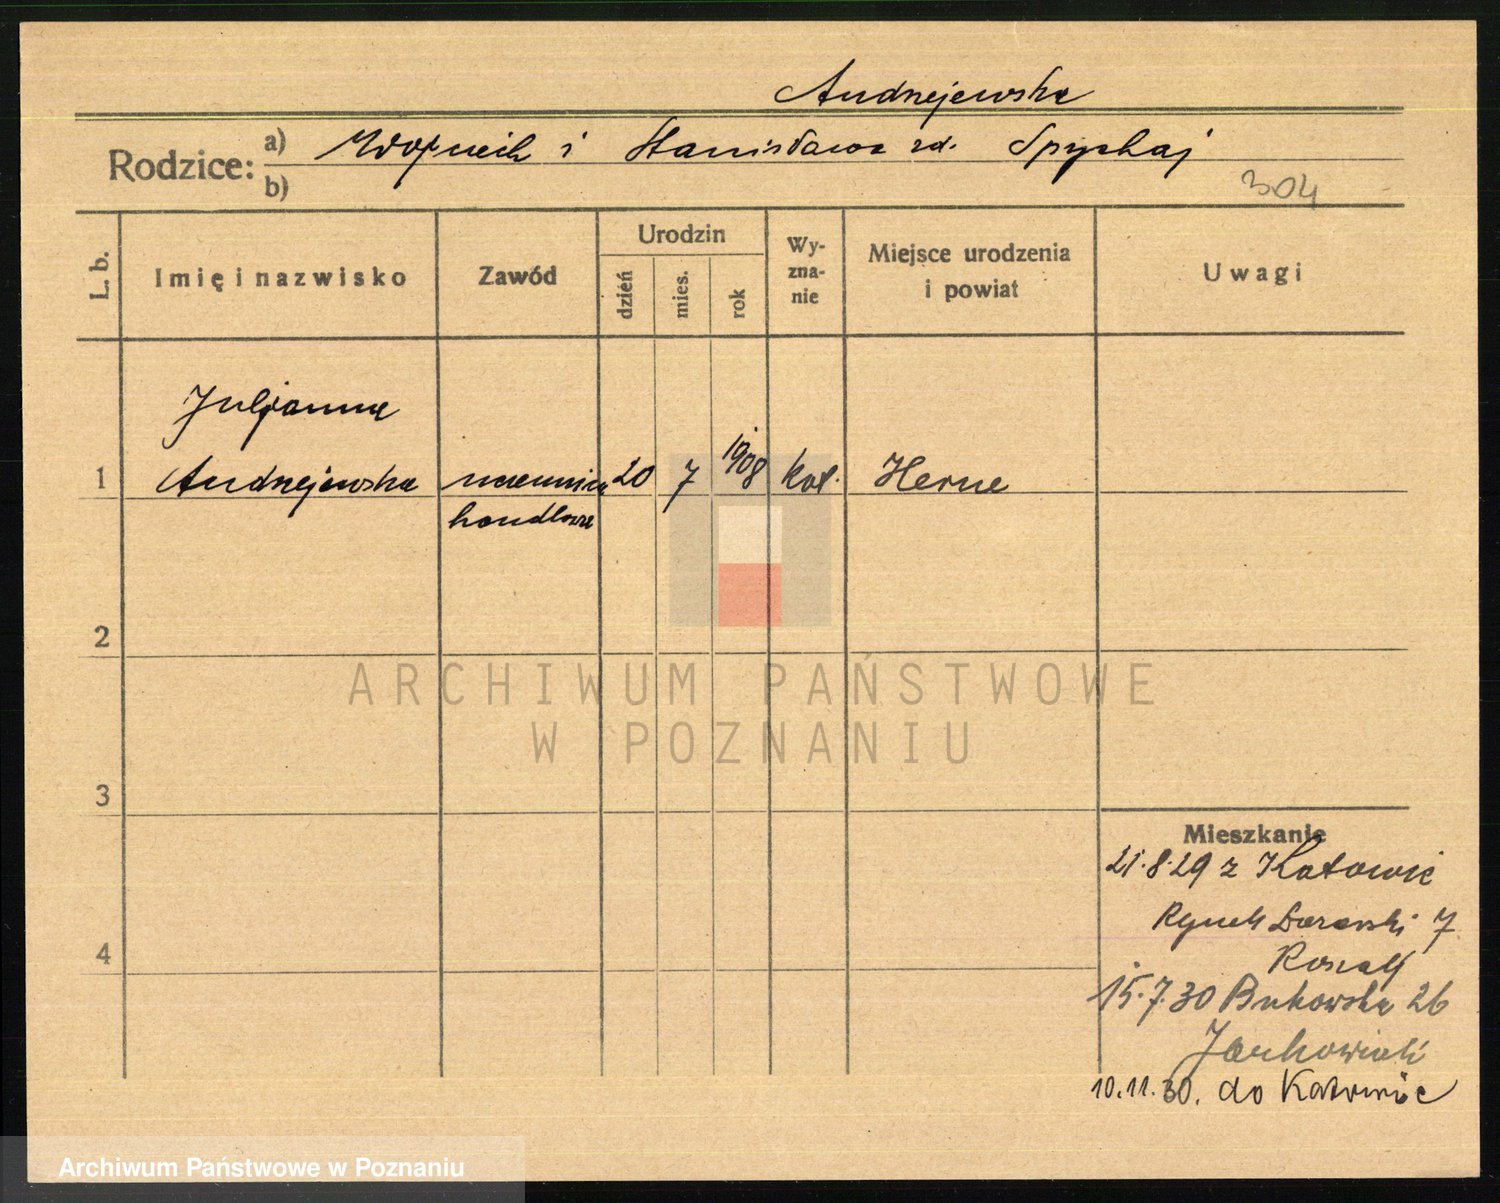 Andrzejewska
Rodzice: a) Wojciech i Stanisława zd. Spychaj
b)
304
L. b. Imię i nazwisko Zawód Urodzin dzień mies. rok Wy-zna-nie Miejsce urodzenia i powiat Uwagi
Juljanna
1 Andrzejewska uczennica 20 7 1908 kat. Herne
handlowa
2
ARCHIWUM PAŃSTWOWE
W POZNANIU
3
Mieszkanie
21.8.29 z Katowic
Rynek 7
4
15.7.30 Bukowska 26
10.11.30. do Katowic
Archiwum Państwowe w Poznaniu